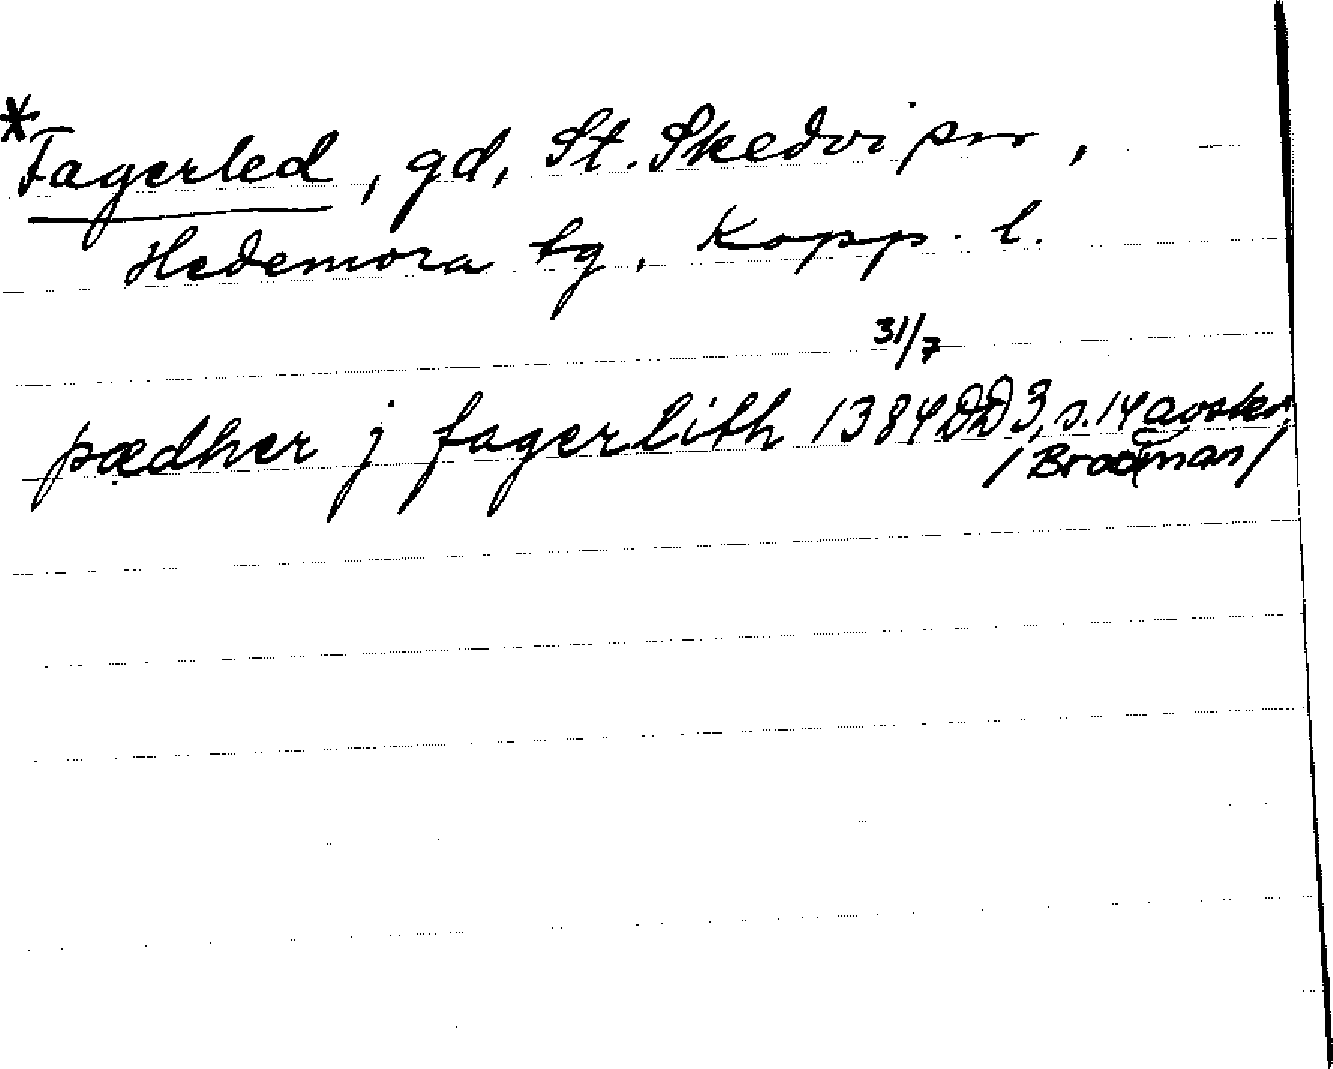 *Fagerled, gd, St. Skedvi sn,
Hedemora tg, Kopp. l.
31/7
pædher j fagerlith 1384 DD 3, s. 14 avskr.
/Brodman/